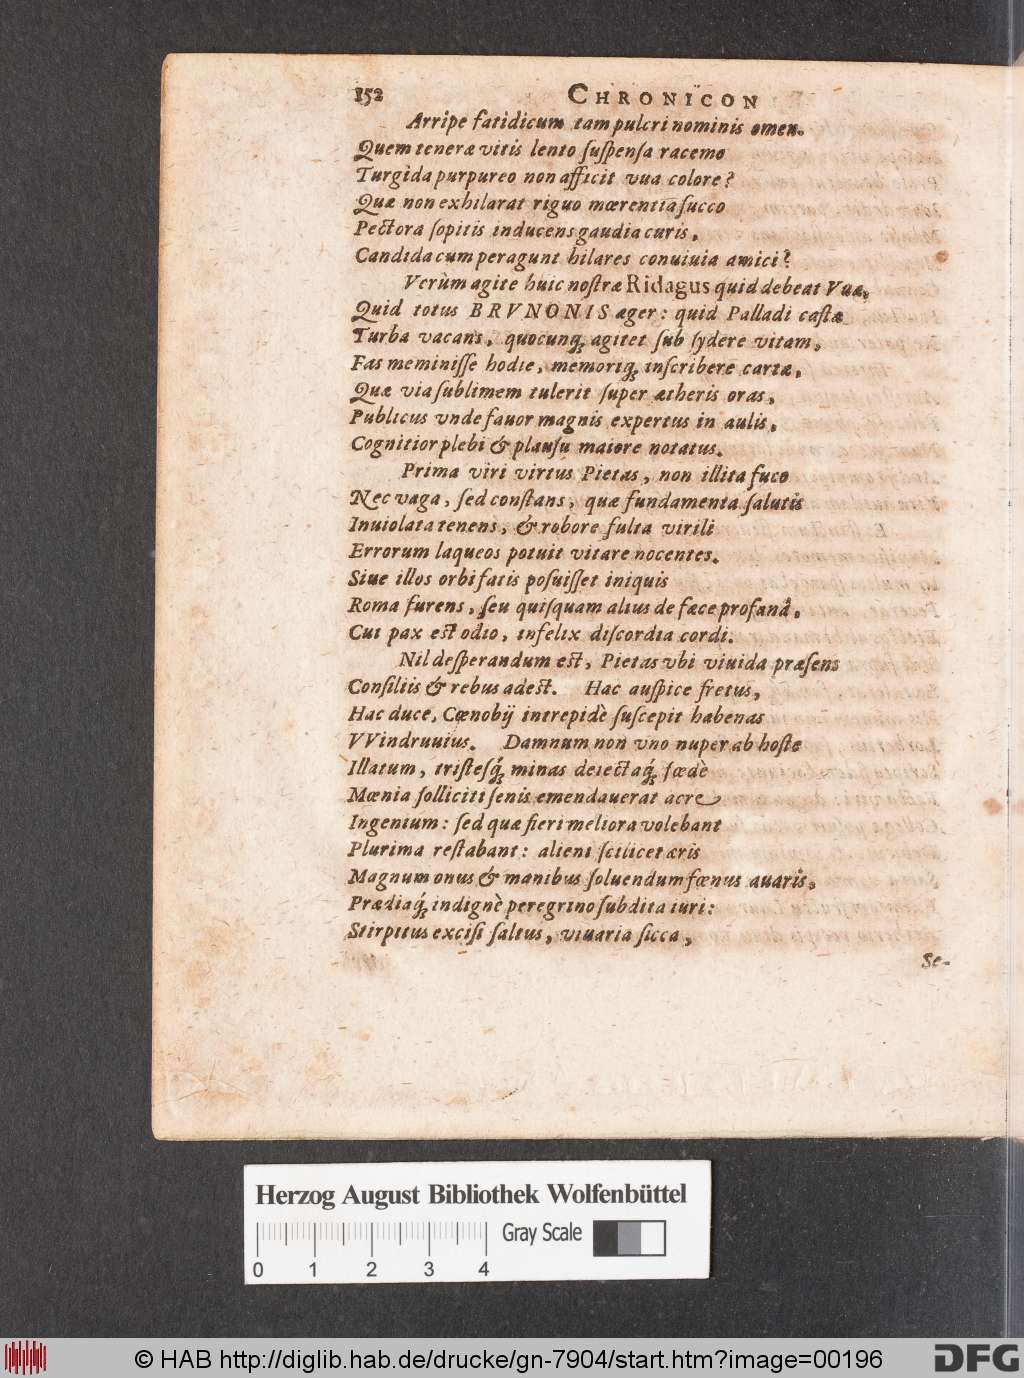 152 CHRONICON
Arripe fatidicum tam pulcri nominis omen.
Quem teneræ vitis lento ſuſpenſa racemo
Turgida purpureo non afficit vua colore?
Quæ non exhilarat riguo mœrentia ſucco
Pectora ſopitis inducens gaudia curis,
Candida cum peragunt hilares conuiuia amici?
Verùm agite huic noſtræ Ridagus quid debeat Vuæ,
Quid totus BRVNONIS ager: quid Palladi caſtæ
Turba vacans, quocunq́; agitet ſub ſydere vitam,
Fas meminiſſe hodie, memoriq́; inſcribere cartæ,
Quæ via ſublimem tulerit ſuper ætheris oras,
Publicus vnde fauor magnis expertus in aulis,
Cognitior plebi & plauſu maiore notatus.
Prima viri virtus Pietas, non illita fuco
Nec vaga, ſed conſtans, quæ fundamenta ſalutis
Inuiolata tenens, & robore fulta virili
Errorum laqueos potuit vitare nocentes.
Siue illos orbi fatis poſuiſſet iniquis
Roma furens, ſeu quiſquam alius de fæce profanâ,
Cui pax est odio, infelix diſcordia cordi.
Nil deſperandum est, Pietas vbi viuida præſens
Conſiliis & rebus adest. Hac auſpice fretus,
Hac duce, Cœnobij intrepidè ſuſcepit habenas
VVindruuius. Damnum non vno nuper ab hoſte
Illatum, triſteſq́; minas deiectaq́; fœdè
Mœnia ſolliciti ſenis emendauerat acre
Ingenium: ſed quæ fieri meliora volebant
Plurima reſtabant: alieni ſcilicet æris
Magnum onus & manibus ſoluendum fœnus auaris,
Prædiaq́; indignè peregrino ſubdita iuri:
Stirpitus exciſi ſaltus, viuaria ſicca,
Se-
Herzog August Bibliothek Wolfenbüttel
Gray Scale
0 1 2 3 4
© HAB http://diglib.hab.de/drucke/gn-7904/start.htm?image=00196 DFG